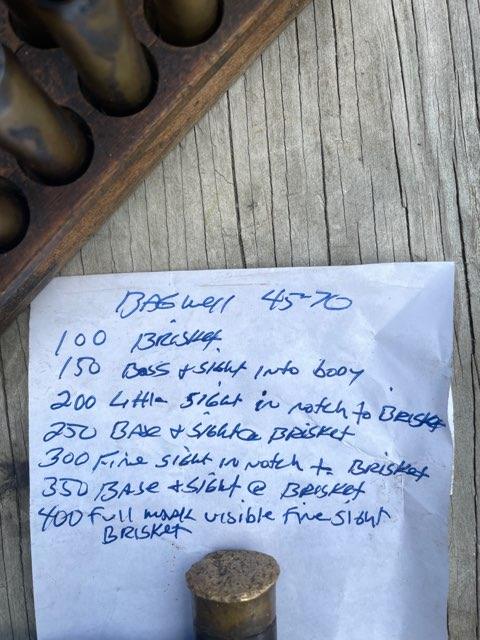 BAGWell 45-70
100 BRISKET
150 Bass & sight into body
200 Little sight in notch to BRISKET
250 BASE & sight @ BRISKET
300 Fine sight in notch to BRISKET
350 BASE & sight @ BRISKET
400 Full mark visible Fine sight
BRISKET